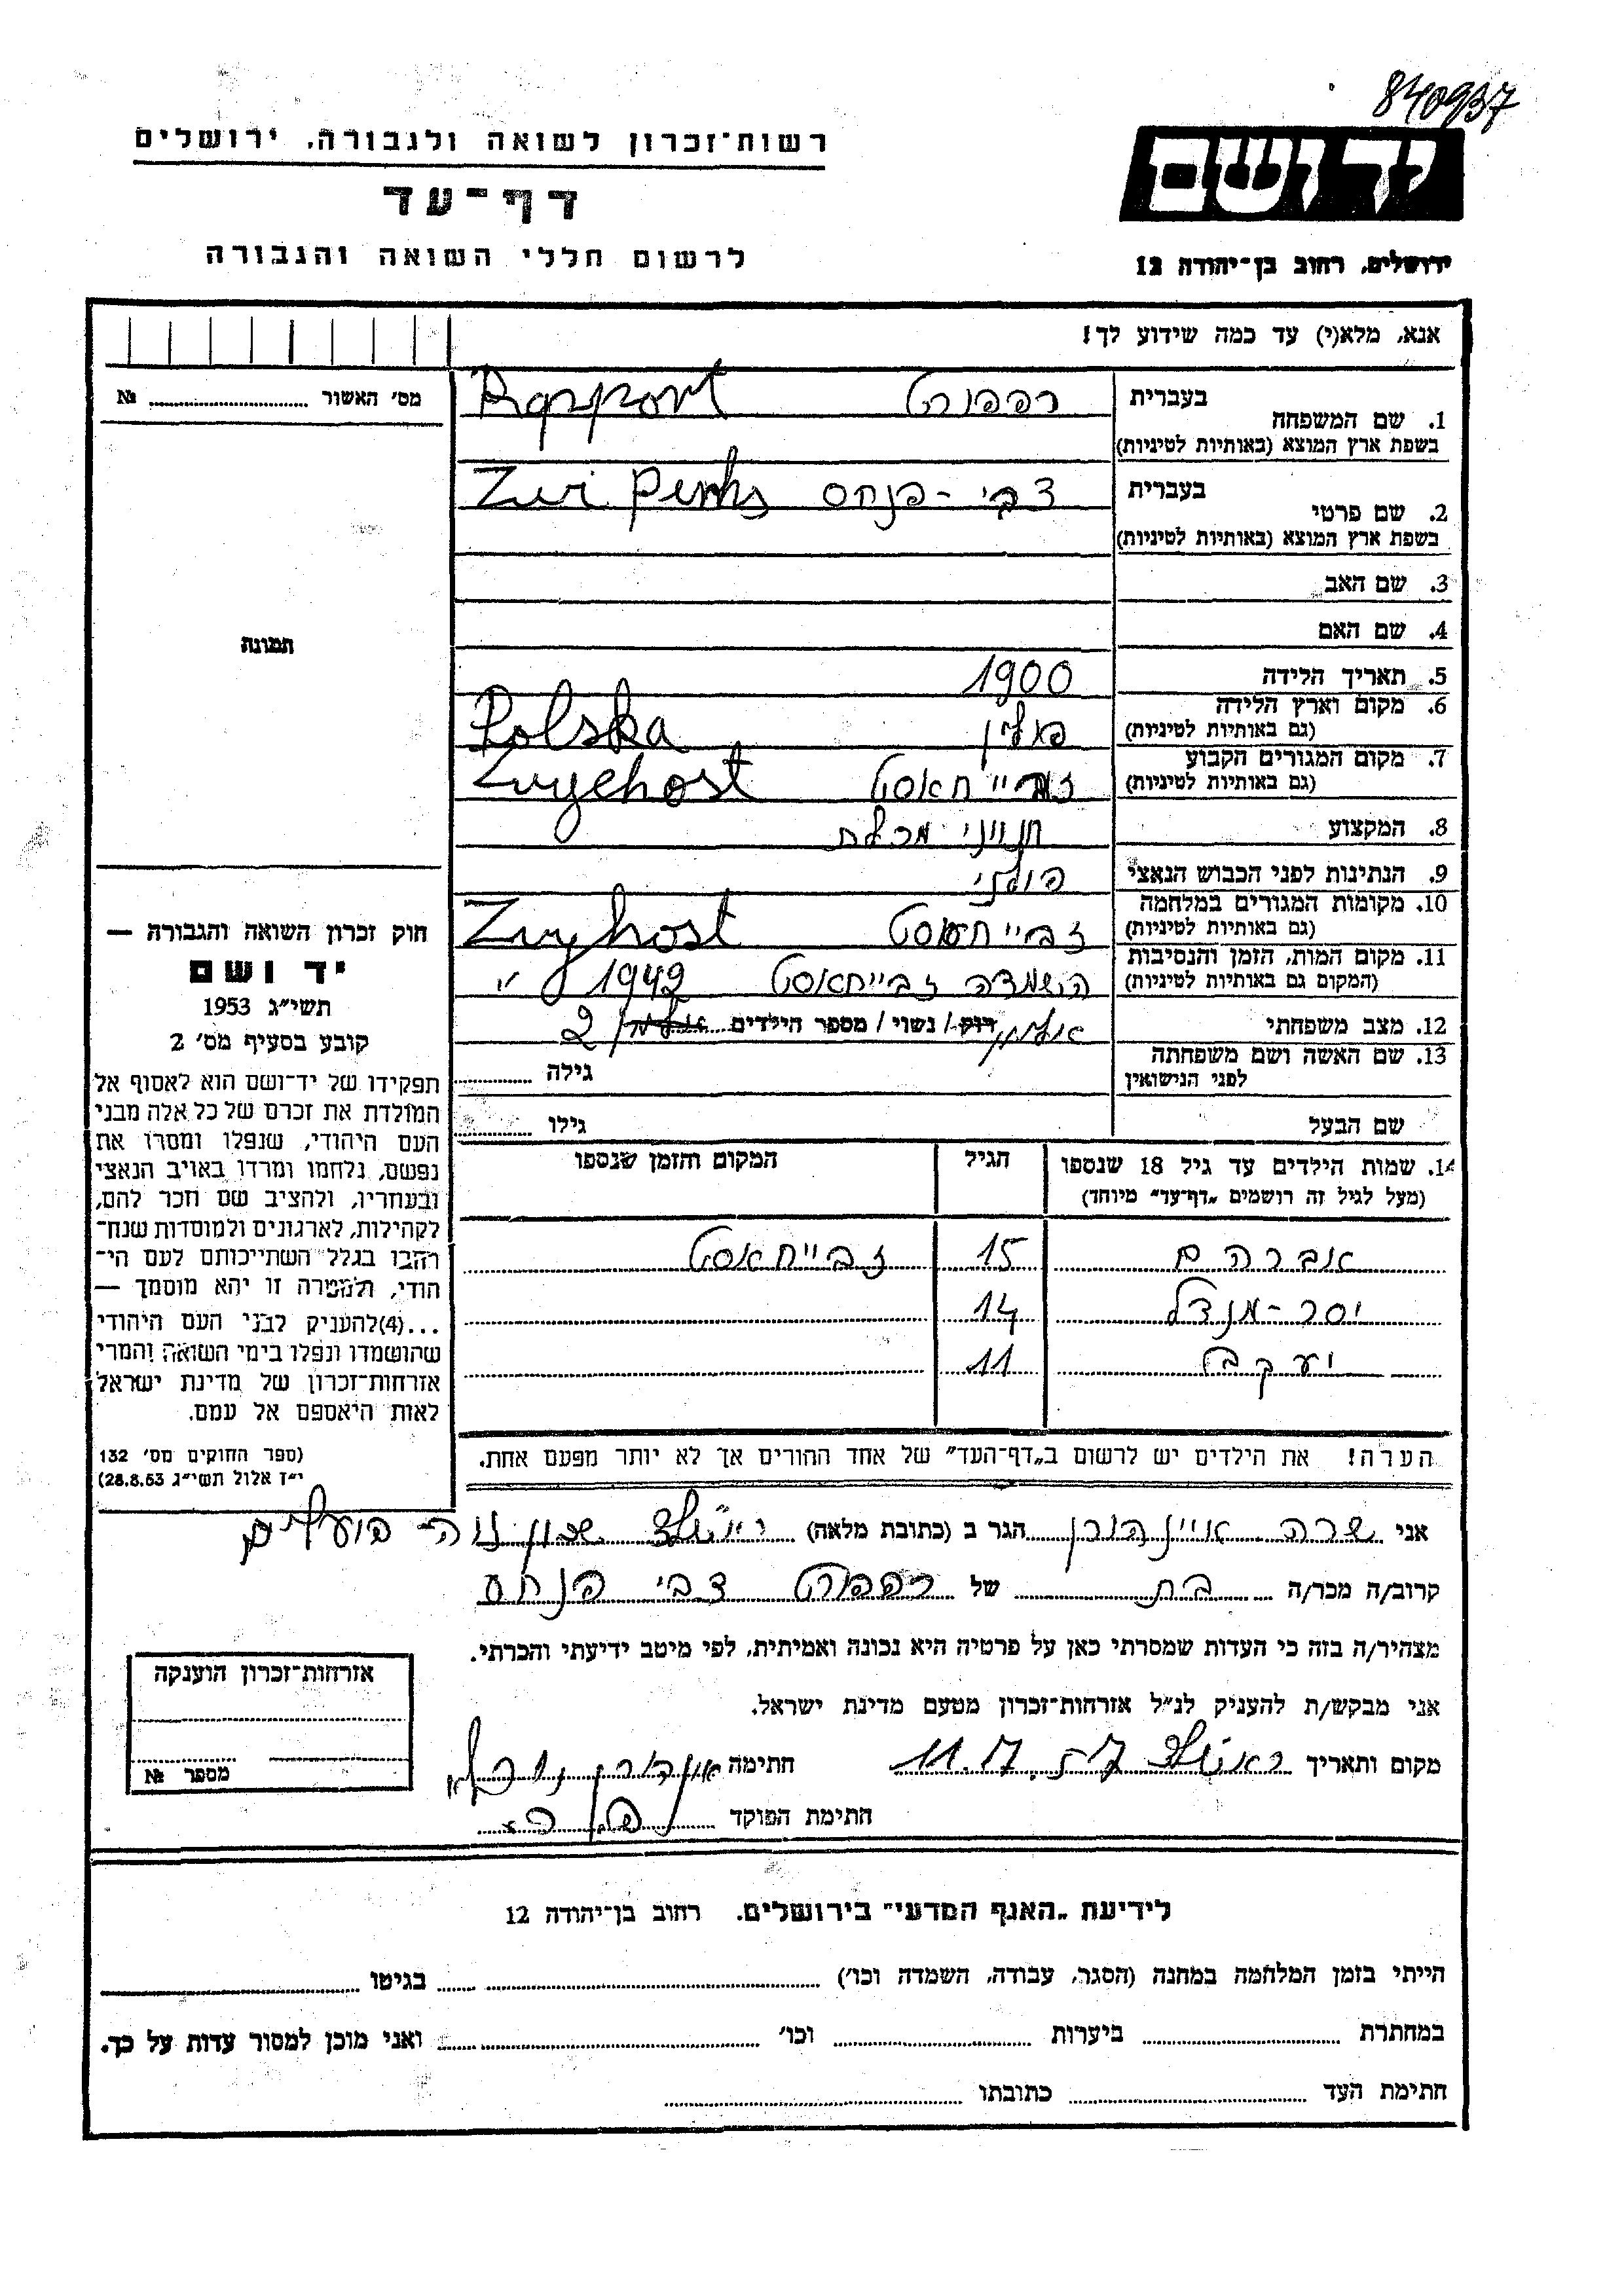 840937
רשות־זכרון לשואה ולגבורה, ירושלים
דף־עד
לרשום חללי השואה והגבורה
יד ושם
ירושלים, רחוב בן־יהודה 12
אנא, מלא(י) עד כמה שידוע לך!
מס׳ האשור № 
1. שם המשפחה
בעברית רפפורט Rapport
בשפת ארץ המוצא (באותיות לטיניות)
2. שם פרטי
בעברית צבי-פנחס Zwi
בשפת ארץ המוצא (באותיות לטיניות)
3. שם האב
4. שם האם
5. תאריך הלידה 1900
6. מקום וארץ הלידה פולין Polska
(גם באותיות לטיניות)
7. מקום המגורים הקבוע
(גם באותיות לטיניות)
8. המקצוע חנווני מכולת
9. הנתינות לפני הכבוש הנאצי פולני
10. מקומות המגורים במלחמה זבייחאסט Zwyhost
(גם באותיות לטיניות)
11. מקום המות, הזמן והנסיבות השמדה זבייחאסט 1942
(המקום גם באותיות לטיניות)
12. מצב משפחתי אלמן רוק / נשוי / מספר הילדים 2
13. שם האשה ושם משפחתה גילה
לפני הנישואין
שם הבעל גילו
14. שמות הילדים עד גיל 18 שנספו הגיל המקום והזמן שנספו
(מעל לגיל זה רושמים „דף־עד״ מיוחד)
אברהם 15 זבייחאסט
יסר-מנדל 14
יעקב 11
הערה! את הילדים יש לרשום ב„דף־העד״ של אחד ההורים אך לא יותר מפעם אחת.
תמונה
חוק זכרון השואה והגבורה —
יד ושם
תשי״ג 1953
קובע בסעיף מס׳ 2
תפקידו של יד־ושם הוא לאסוף אל
המולדת את זכרם של כל אלה מבני
העם היהודי, שנפלו ומסרו את
נפשם, נלחמו ומרדו באויב הנאצי
ובעוזריו, ולהציב שם וזכר להם,
לקהילות, לארגונים ולמוסדות שנח־
רהבו בגלל השתייכותם לעם הי־
הודי, ולמטרה זו יהא מוסמך —
...(4)להעניק לבני העם היהודי
שהושמדו ונפלו בימי השואה והמרי
אזרחות־זכרון של מדינת ישראל
לאות היאספם אל עמם.
(ספר החוקים מס׳ 132
י״ז אלול תשי״ג 28.8.53)
אני שרה איינהורן הגר ב (כתובת מלאה) ראשל״צ שכון נוה- פועלים
קרוב/ה מכר/ה בת של רפפורט צבי פנחס
מצהיר/ה בזה כי העדות שמסרתי כאן על פרטיה היא נכונה ואמיתית, לפי מיטב ידיעתי והכרתי.
אני מבקש/ת להעניק לנ״ל אזרחות־זכרון מטעם מדינת ישראל.
מקום ותאריך ראשל״צ 11.7. חתימה
חתימת הפוקד
אזרחות־זכרון הוענקה
מספר №
לידיעת „האגף המדעי״ בירושלים, רחוב בן־יהודה 12
הייתי בזמן המלחמה במחנה (הסגר, עבודה, השמדה וכו׳) בגיטו
במחתרת ביערות וכו׳ ואני מוכן למסור עדות על כך.
חתימת העד כתובתו